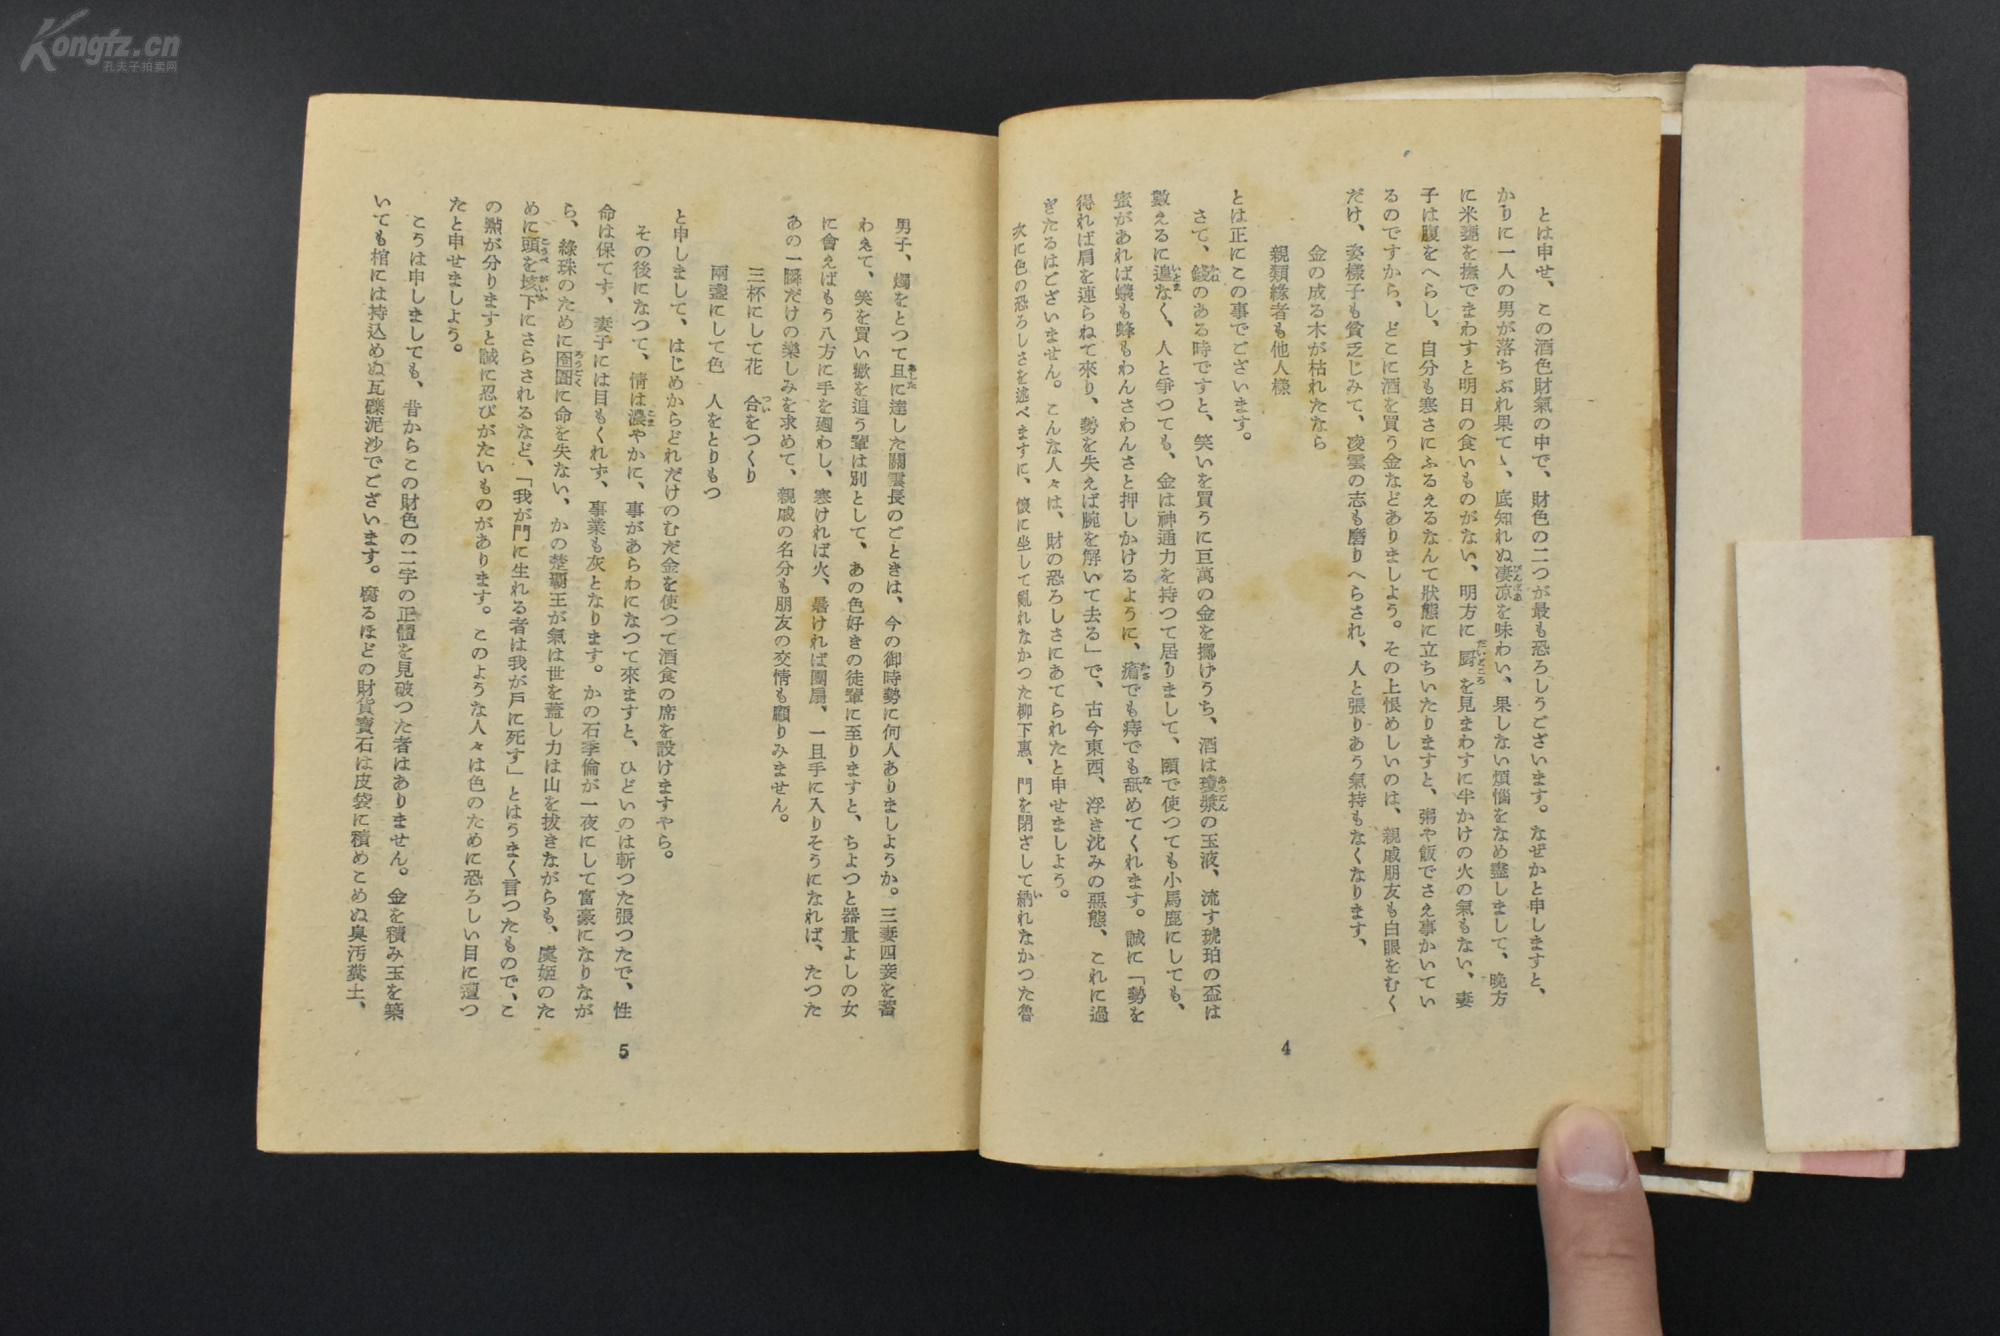 Kongfz.cn
孔夫子拍卖网
とは申せ、この酒色財氣の中で、財色の二つが最も恐ろしうございます。なぜかと申しますと、
かりに一人の男が落ちぶれ果てゝ、底知れぬ凄凉を味わい、果しない煩惱をなめ盡しまして、晩方
に米甕を撫でまわすと明日の食いものがない、明方に厨を見まわすに半かけの火の氣もない、妻
子は腹をへらし、自分も寒さにふるえるなんて狀態に立ちいたりますと、粥や飯でさえ事かいてい
るのですから、どこに酒を買う金などありましよう。その上恨めしいのは、親戚朋友も白眼をむく
だけ、姿樣子も貧乏じみて、凌雲の志も磨りへらされ、人と張りあう氣持もなくなります、
金の成る木が枯れたなら
親類緣者も他人樣
とは正にこの事でございます。
さて、錢のある時ですと、笑いを買うに巨萬の金を擲けうち、酒は瓊漿の玉液、流す琥珀の盃は
數えるに遑なく、人と爭つても、金は神通力を持つて居りまして、頤で使つても小馬鹿にしても、
蜜があれば蟻も蜂もわんさわんさと押しかけるように、瘡でも痔でも舐めてくれます。誠に「勢を
得れば肩を連らねて來り、勢を失えば腕を解いて去る」で、古今東西、浮き沈みの惡態、これに過
ぎたるはございません。こんな人々は、財の恐ろしさにあてられたと申せましよう。
次に色の恐ろしさを述べますに、懷に坐して亂れなかつた柳下惠、門を閉ざして納れなかつた魯
4
男子、燭をとつて旦に達した關雲長のごときは、今の御時勢に何人ありましようか。三妻四妾を蓄
わえて、笑を買い歡を追う輩は別として、あの色好きの徒輩に至りますと、ちよつと器量よしの女
に會えばもう八方に手を廻わし、寒ければ火、暑ければ團扇、一旦手に入りそうになれば、たつた
あの一瞬だけの樂しみを求めて、親戚の名分も朋友の交情も顧りみません。
三杯にして花　合をつくり
兩盞にして色　人をとりもつ
と申しまして、はじめからどれだけのむだ金を使つて酒食の席を設けますやら。
その後になつて、情は濃やかに、事があらわになつて來ますと、ひどいのは斬つた張つたで、性
命は保てず、妻子には目もくれず、事業も灰となります。かの石季倫が一夜にして富豪になりなが
ら、綠珠のために囹圄に命を失ない、かの楚覇王が氣は世を蓋し力は山を拔きながらも、虞姬のた
めに頭を垓下にさらされるなど、「我が門に生れる者は我が戶に死す」とはうまく言つたもので、こ
の點が分りますと誠に忍びがたいものがあります。このような人々は色のために恐ろしい目に遭つ
たと申せましよう。
こうは申しましても、昔からこの財色の二字の正體を見破つた者はありません。金を積み玉を築
いても棺には持込めぬ瓦礫泥沙でございます。腐るほどの財貨寶石は皮袋に積めこめぬ臭汚糞土、
5